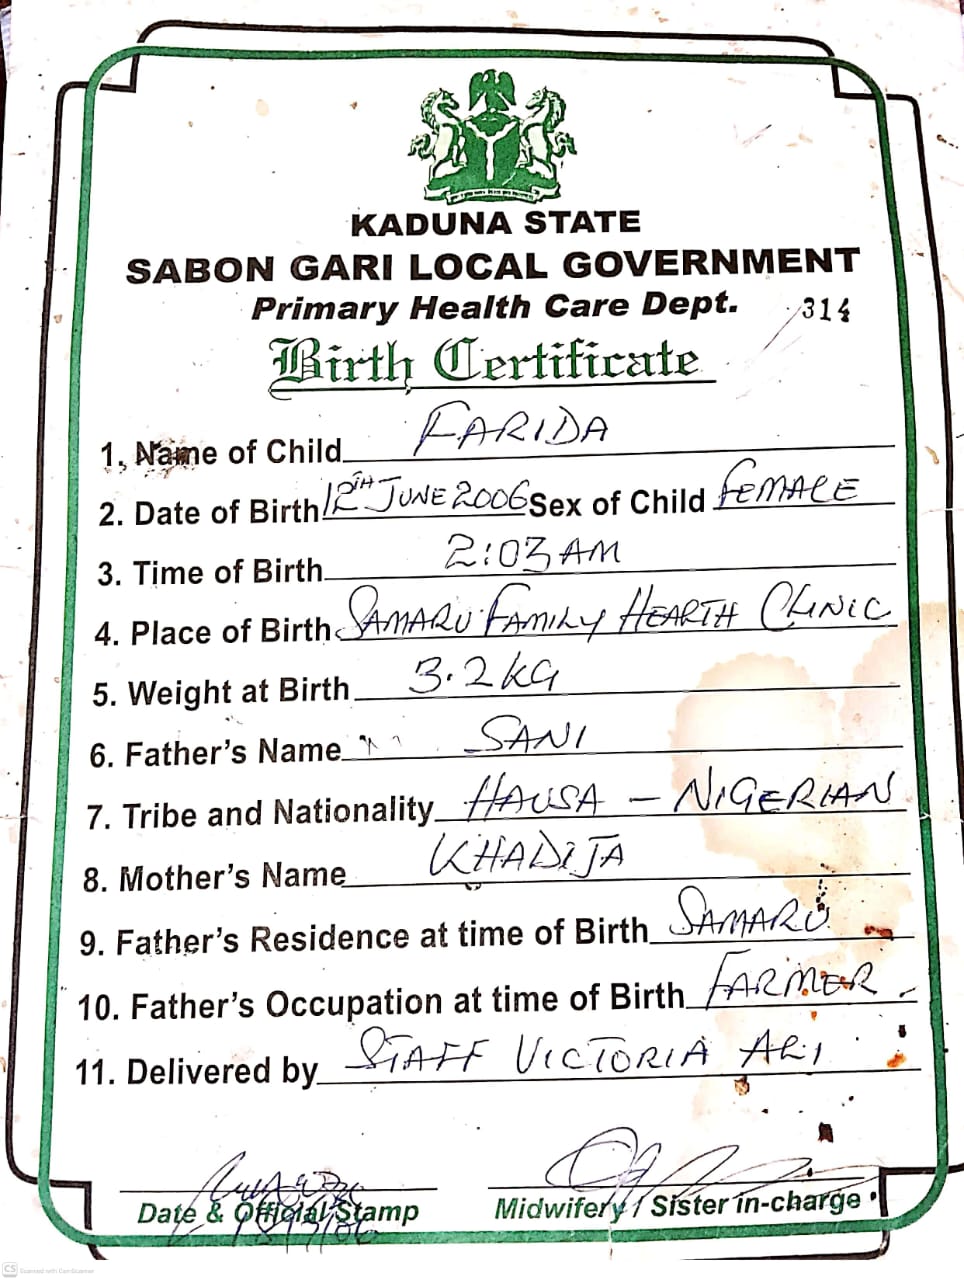 KADUNA STATE
SABON GARI LOCAL GOVERNMENT
Primary Health Care Dept. 314
Birth Certificate
1, Name of Child FARIDA
2. Date of Birth 12TH JUNE 2006 Sex of Child FEMALE
3. Time of Birth 2:03 AM
4. Place of Birth SAMARU FAMILY HEARTH CLINIC
5. Weight at Birth 3.2KG
6. Father's Name SANI
7. Tribe and Nationality HAUSA - NIGERIAN
8. Mother's Name KHADIJA
9. Father's Residence at time of Birth SAMARU
10. Father's Occupation at time of Birth FARMER
11. Delivered by STAFF VICTORIA ARI
Date & Official Stamp Midwifery / Sister in-charge
CS Scanned with CamScanner